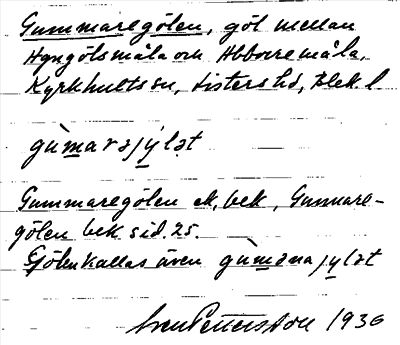 Gummaregölen, göl mellan
Agngölsmåla och Abboremåla,
Kyrkhults sn, Listers hd, Blek. l.
gùmarəjýlət
Gummaregölen ek. bek, Gunnare-
gölen bek sid. 25.
Sjön kallas även gùmənajýlət
Sven Pettersson 1936